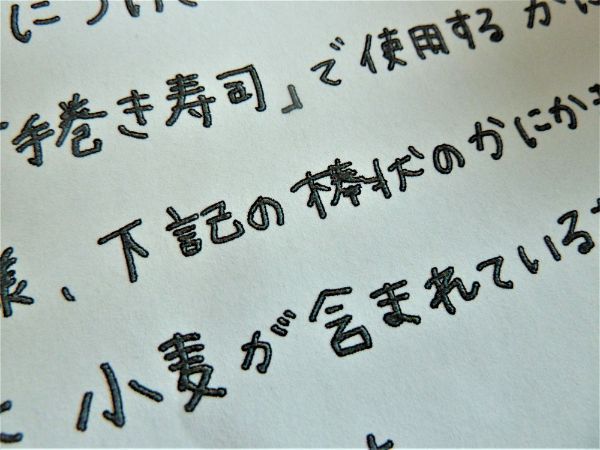 について
「手巻き寿司」で使用するかに
様、下記の棒状のかにかま
に小麦が含まれている